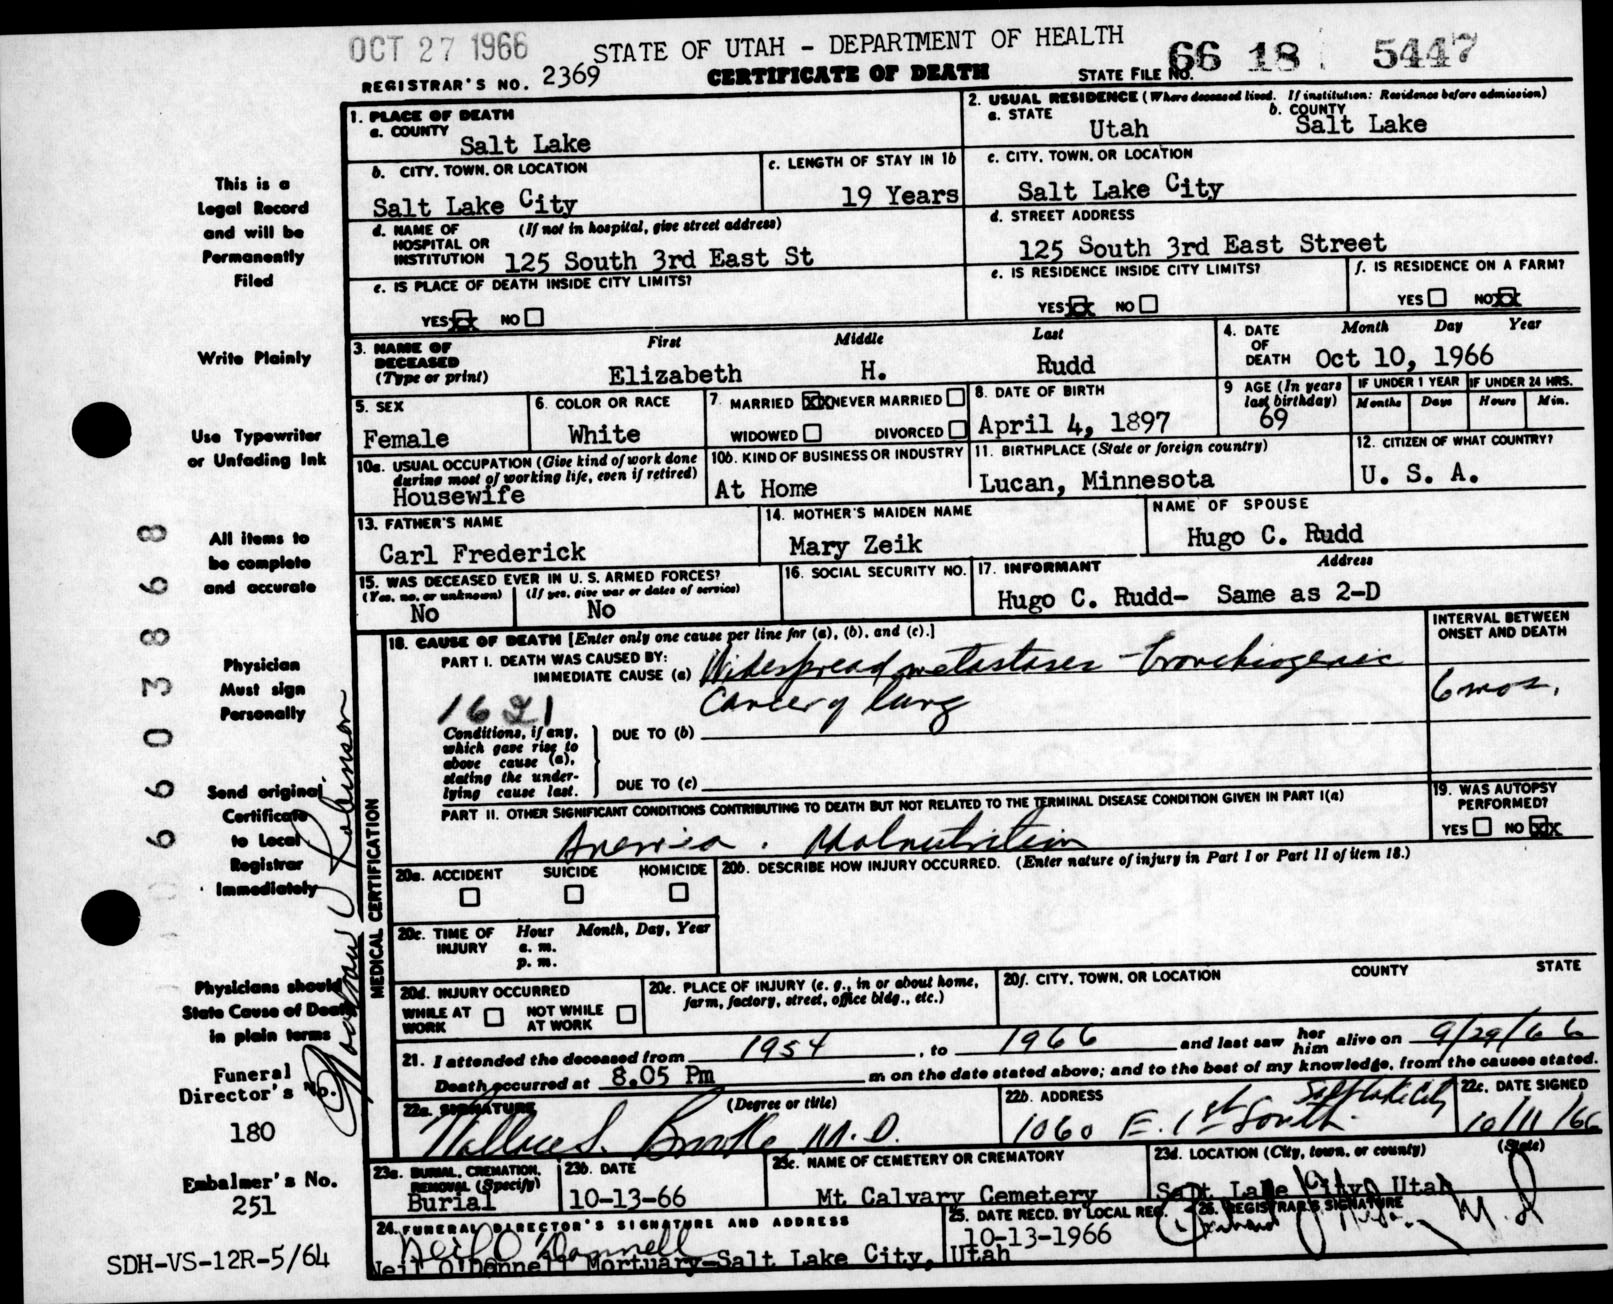 OCT 27 1966
STATE OF UTAH - DEPARTMENT OF HEALTH
REGISTRAR'S NO. 2369
CERTIFICATE OF DEATH
STATE FILE NO. 66 18 5447
1. PLACE OF DEATH
a. COUNTY
Salt Lake
2. USUAL RESIDENCE (Where deceased lived. If institution: Residence before admission)
a. STATE
Utah
b. COUNTY
Salt Lake
b. CITY, TOWN, OR LOCATION
Salt Lake City
c. LENGTH OF STAY IN 1b
19 Years
c. CITY, TOWN, OR LOCATION
Salt Lake City
d. NAME OF HOSPITAL OR INSTITUTION
(If not in hospital, give street address)
125 South 3rd East St
d. STREET ADDRESS
125 South 3rd East Street
e. IS PLACE OF DEATH INSIDE CITY LIMITS?
YES XX NO
e. IS RESIDENCE INSIDE CITY LIMITS?
YES XX NO
f. IS RESIDENCE ON A FARM?
YES NO XX
3. NAME OF DECEASED
(Type or print)
First Middle Last
Elizabeth H. Rudd
4. DATE OF DEATH
Month Day Year
Oct 10, 1966
5. SEX
Female
6. COLOR OR RACE
White
7. MARRIED XX NEVER MARRIED
WIDOWED DIVORCED
8. DATE OF BIRTH
April 4, 1897
9 AGE (In years last birthday)
69
IF UNDER 1 YEAR
Months Days
IF UNDER 24 HRS.
Hours Min.
10a. USUAL OCCUPATION (Give kind of work done during most of working life, even if retired)
Housewife
10b. KIND OF BUSINESS OR INDUSTRY
At Home
11. BIRTHPLACE (State or foreign country)
Lucan, Minnesota
12. CITIZEN OF WHAT COUNTRY?
U. S. A.
13. FATHER'S NAME
Carl Frederick
14. MOTHER'S MAIDEN NAME
Mary Zeik
NAME OF SPOUSE
Hugo C. Rudd
15. WAS DECEASED EVER IN U. S. ARMED FORCES?
(Yes, no, or unknown)
No
(If yes, give war or dates of service)
No
16. SOCIAL SECURITY NO.
17. INFORMANT Address
Hugo C. Rudd- Same as 2-D
18. CAUSE OF DEATH [Enter only one cause per line for (a), (b), and (c).]
PART I. DEATH WAS CAUSED BY:
IMMEDIATE CAUSE (a) Widespread metastases bronchiogenic
Cancer of lung
INTERVAL BETWEEN ONSET AND DEATH
6 mos.
1621
Conditions, if any, which gave rise to above cause (a), stating the underlying cause last.
DUE TO (b)
DUE TO (c)
PART II. OTHER SIGNIFICANT CONDITIONS CONTRIBUTING TO DEATH BUT NOT RELATED TO THE TERMINAL DISEASE CONDITION GIVEN IN PART I(a)
Anemia. Malnutrition
19. WAS AUTOPSY PERFORMED?
YES NO XX
20a. ACCIDENT SUICIDE HOMICIDE
20b. DESCRIBE HOW INJURY OCCURRED. (Enter nature of injury in Part I or Part II of item 18.)
20c. TIME OF INJURY Hour Month, Day, Year
a. m.
p. m.
20d. INJURY OCCURRED
WHILE AT WORK NOT WHILE AT WORK
20e. PLACE OF INJURY (e. g., in or about home, farm, factory, street, office bldg., etc.)
20f. CITY, TOWN, OR LOCATION COUNTY STATE
21. I attended the deceased from 1954, to 1966 and last saw her him alive on 9/29/66
Death occurred at 8.05 Pm m on the date stated above; and to the best of my knowledge, from the causes stated.
22a. SIGNATURE (Degree or title)
Wallace S. Brooke M.D.
22b. ADDRESS
1060 E. 1st South Salt Lake City
22c. DATE SIGNED
10/11/66
23a. BURIAL, CREMATION, REMOVAL (Specify)
Burial
23b. DATE
10-13-66
23c. NAME OF CEMETERY OR CREMATORY
Mt Calvary Cemetery
23d. LOCATION (City, town, or county) (State)
Salt Lake City, Utah
24. FUNERAL DIRECTOR'S SIGNATURE AND ADDRESS
Neil O'Donnell
Neil O'Donnell Mortuary-Salt Lake City, Utah
25. DATE RECD. BY LOCAL REG.
10-13-1966
26. REGISTRAR'S SIGNATURE
M.D
MEDICAL CERTIFICATION
This is a
Legal Record
and will be
Permanently
Filed
Write Plainly
Use Typewriter
or Unfading Ink
All items to
be complete
and accurate
Physician
Must sign
Personally
Send original
Certificate
to Local
Registrar
Immediately
Physicians should
State Cause of Death
in plain terms
Funeral
Director's No.
180
Embalmer's No.
251
SDH-VS-12R-5/64
6 6 0 3 8 9 6 8
Robinson